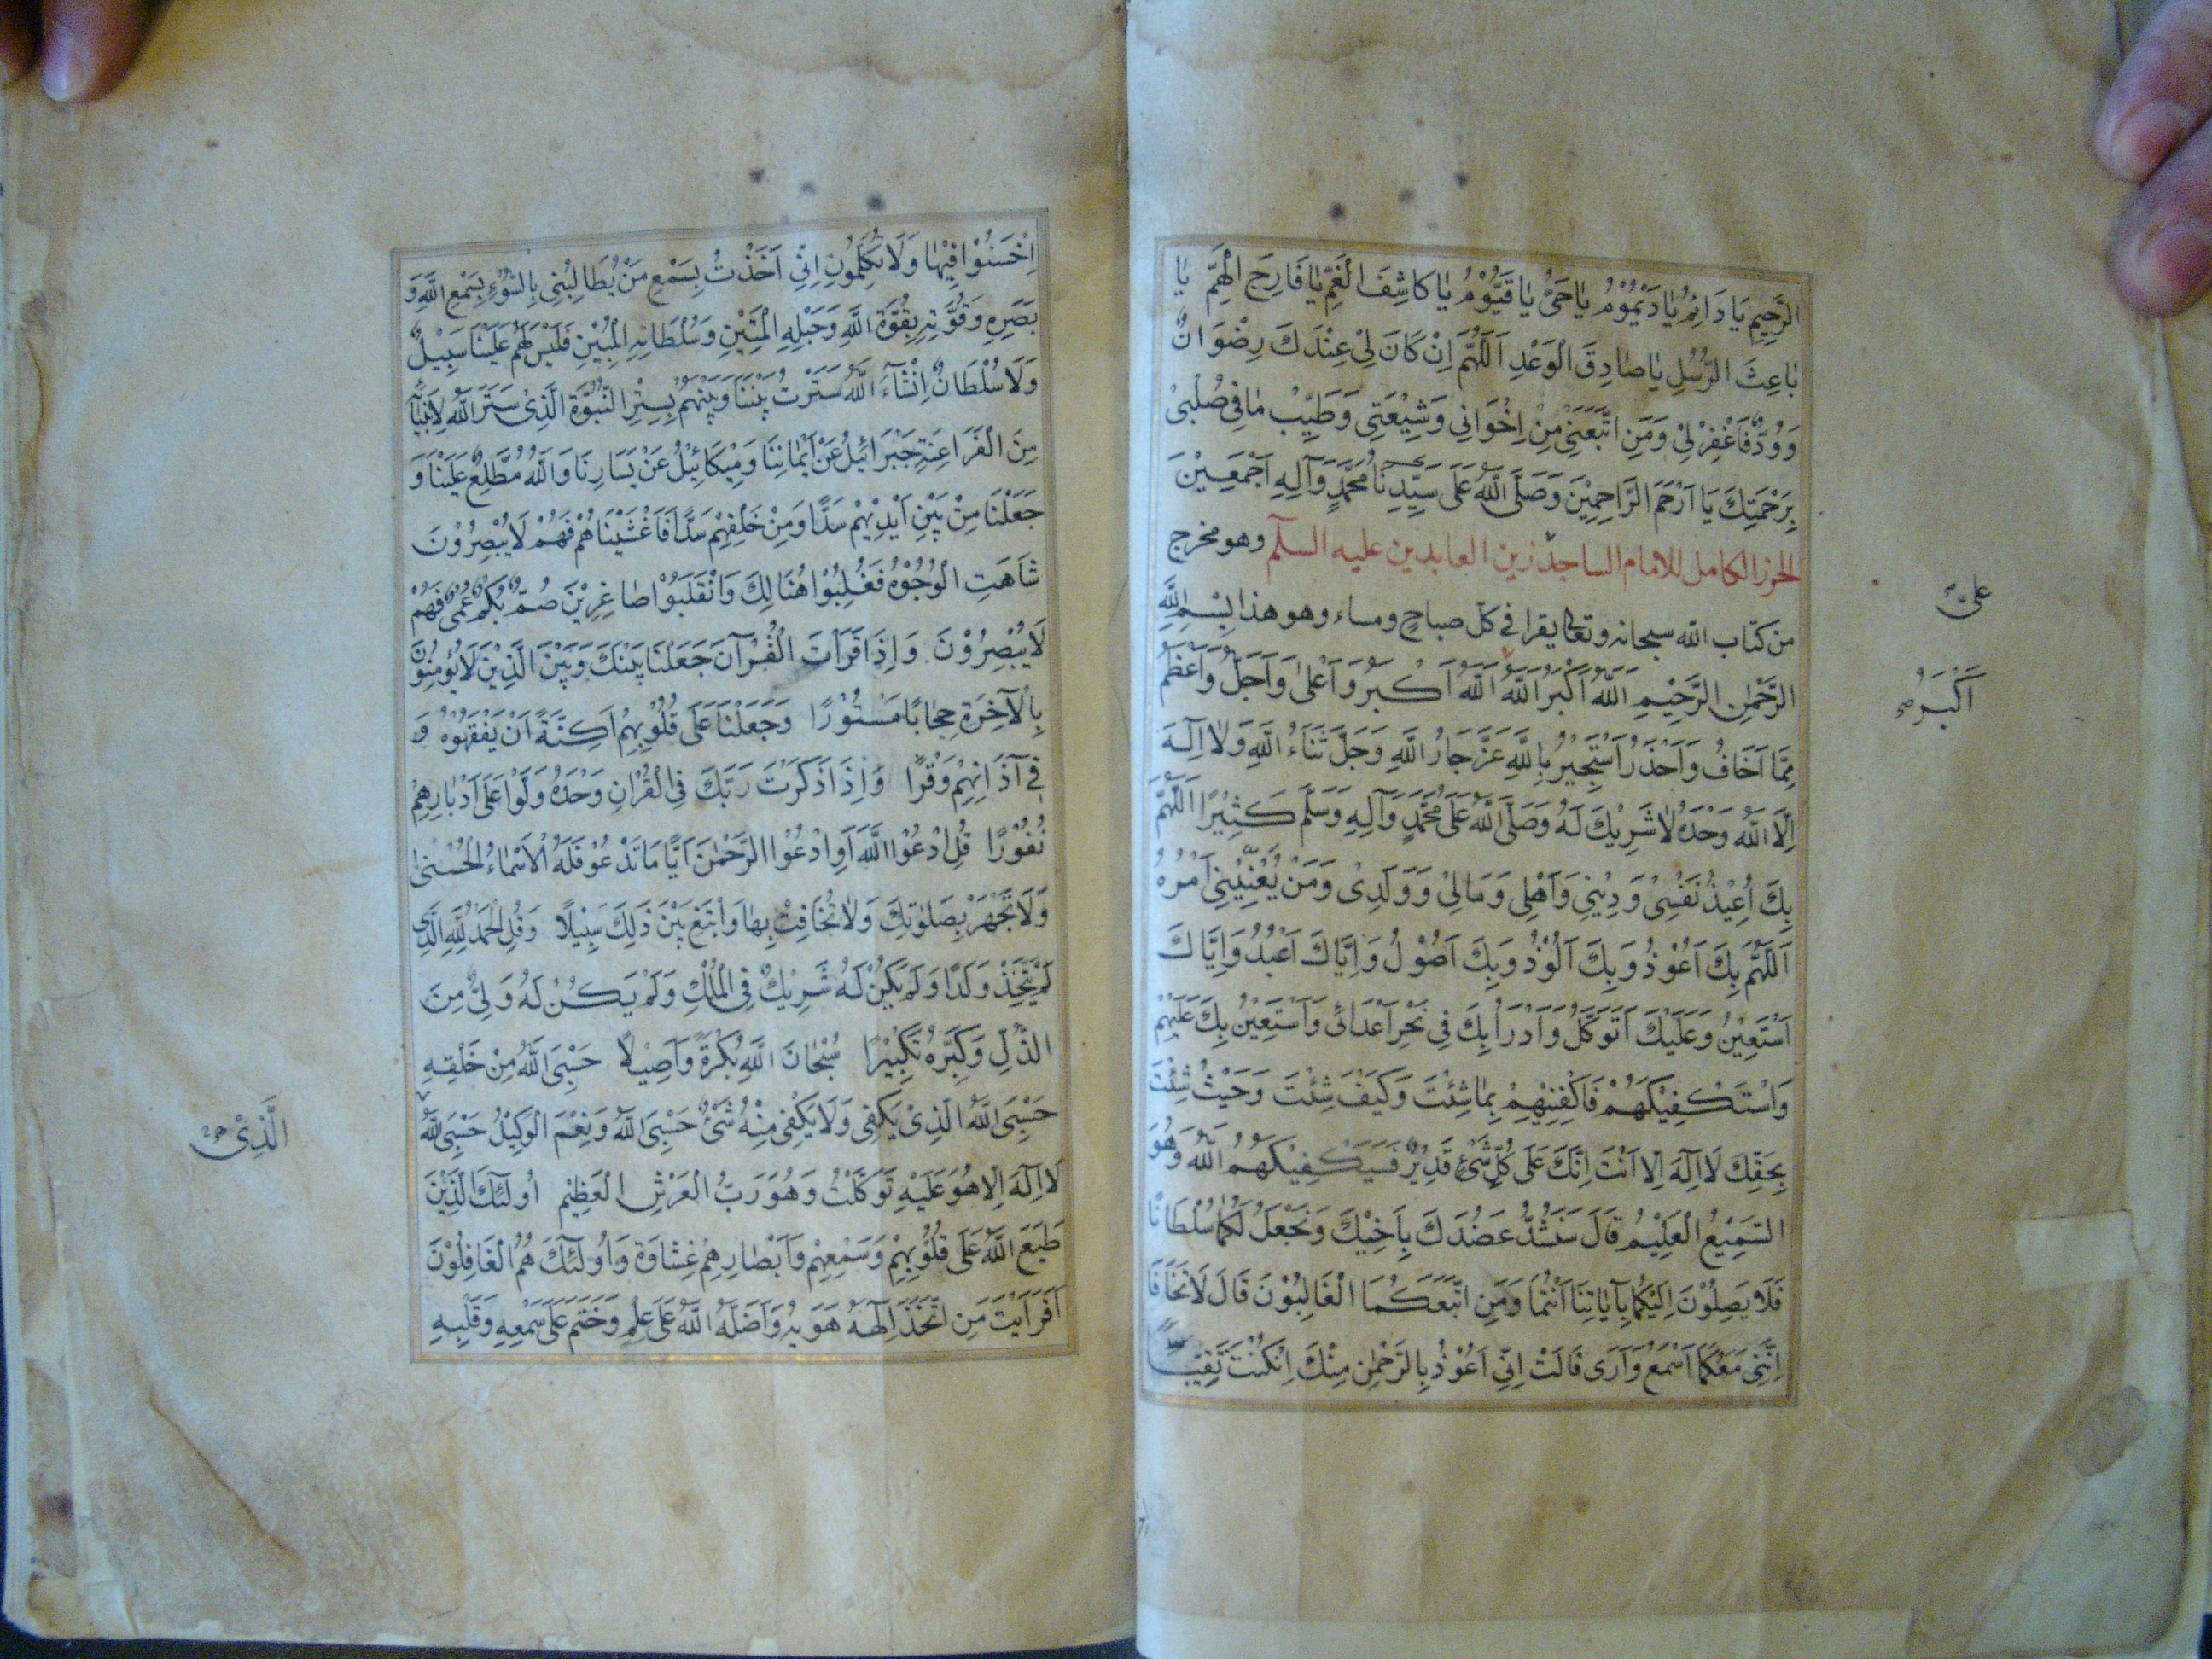 الرَّحِيمِ يَا دَائِمُ يَا دَيْمُوْمُ يَا حَيُّ يَا قَيُّوْمُ يَا كَاشِفَ الْغَمِّ يَا فَارِجَ الْهَمِّ يَا
بَاعِثَ الرُّسُلِ يَا صَادِقَ الْوَعْدِ اَللّٰهُمَّ اِنْ كَانَ لِيْ عِنْدَكَ رِضْوَانٌ
وَوُدٌّ فَاغْفِرْ لِيْ وَمَنِ اتَّبَعَنِيْ مِنْ اِخْوَانِي وَشِيْعَتِي وَطَيِّبْ مَا فِي صُلْبِيْ
بِرَحْمَتِكَ يَا اَرْحَمَ الرَّاحِمِيْنَ وَصَلَّى اللّٰهُ عَلَى سَيِّدِنَا مُحَمَّدٍ وَآلِهِ اَجْمَعِيْنَ
الحرز الكامل للامام الساجد زين العابدين عليه السلم وهو مخرج
من كتاب الله سبحانه وتعالى يقرا في كل صباح ومساء وهو هذا بِسْمِ اللّٰهِ
الرَّحْمٰنِ الرَّحِيْمِ اَللّٰهُ اَكْبَرُ اَللّٰهُ اَللّٰهُ اَكْبَرُ وَاَعْلٰى وَاَجَلُّ وَاَعْظَمُ
مِمَّا اَخَافُ وَاَحْذَرُ اَسْتَجِيْرُ بِاللّٰهِ عَزَّ جَارُ اللّٰهِ وَجَلَّ ثَنَاءُ اللّٰهِ وَلَا اِلٰهَ
اِلَّا اللّٰهُ وَحْدَهُ لَا شَرِيْكَ لَهُ وَصَلَّى اللّٰهُ عَلَى مُحَمَّدٍ وَآلِهِ وَسَلَّمَ كَثِيْرًا اَللّٰهُمَّ
بِكَ اُعِيْذُ نَفْسِيْ وَدِيْنِي وَاَهْلِي وَمَالِيْ وَوَلَدِيْ وَمَنْ يَعْنِيْنِي اَمْرُهُ
اَللّٰهُمَّ بِكَ اَعُوْذُ وَبِكَ اَلُوْذُ وَبِكَ اَصُوْلُ وَاِيَّاكَ اَعْبُدُ وَاِيَّاكَ
اَسْتَعِيْنُ وَعَلَيْكَ اَتَوَكَّلُ وَاَدْرَاُ بِكَ فِي نَحْرِ اَعْدَائِي وَاَسْتَعِيْنُ بِكَ عَلَيْهِمْ
وَاَسْتَكْفِيْكَهُمْ فَاكْفِنِيْهِمْ بِمَا شِئْتَ وَكَيْفَ شِئْتَ وَحَيْثُ شِئْتَ
بِحَقِّكَ لَا اِلٰهَ اِلَّا اَنْتَ اِنَّكَ عَلَى كُلِّ شَيْءٍ قَدِيْرٌ فَسَيَكْفِيْكَهُمُ اللّٰهُ وَهُوَ
السَّمِيْعُ الْعَلِيْمُ قَالَ سَنَشُدُّ عَضُدَكَ بِاَخِيْكَ وَنَجْعَلُ لَكُمَا سُلْطَانًا
فَلَا يَصِلُوْنَ اِلَيْكُمَا بِآيَاتِنَا اَنْتُمَا وَمَنِ اتَّبَعَكُمَا الْغَالِبُوْنَ قَالَ لَا تَخَافَا
اِنَّنِي مَعَكُمَا اَسْمَعُ وَاَرَى قَالَتْ اِنِّي اَعُوْذُ بِالرَّحْمٰنِ مِنْكَ اِنْ كُنْتَ تَقِيًّا
على
اَكْبَرُ صح
اِخْسَئُوْا فِيْهَا وَلَا تُكَلِّمُوْنِ اِنِّي اَخَذْتُ بِسَمْعِ مَنْ يُطَالِبُنِي بِالسُّوْءِ بِسَمْعِ اللّٰهِ وَ
بَصَرِهِ وَقُوَّتِهِ بِقُوَّةِ اللّٰهِ وَحَبْلِهِ الْمَتِيْنِ وَسُلْطَانِهِ الْمُبِيْنِ فَلَيْسَ لَهُمْ عَلَيْنَا سَبِيْلٌ
وَلَا سُلْطَانٌ اِنْشَآءَ اللّٰهُ سَتَرْتُ بَيْنَنَا وَبَيْنَهُمْ بِسِتْرِ النُّبُوَّةِ الَّذِيْ سَتَرَ اللّٰهُ لِاَنْبِيَآئِهِ
مِنَ الْفَرَاعِنَةِ جَبْرَائِيْلُ عَنْ اَيْمَانِنَا وَمِيْكَائِيْلُ عَنْ يَسَارِنَا وَاللّٰهُ مُطَّلِعٌ عَلَيْنَا وَ
جَعَلْنَا مِنْ بَيْنِ اَيْدِيْهِمْ سَدًّا وَمِنْ خَلْفِهِمْ سَدًّا فَاَغْشَيْنَاهُمْ فَهُمْ لَا يُبْصِرُوْنَ
شَاهَتِ الْوُجُوْهُ فَغُلِبُوْا هُنَالِكَ وَانْقَلَبُوْا صَاغِرِيْنَ صُمٌّ بُكْمٌ عُمْيٌ فَهُمْ
لَا يُبْصِرُوْنَ وَاِذَا قَرَأْتَ الْقُرْآنَ جَعَلْنَا بَيْنَكَ وَبَيْنَ الَّذِيْنَ لَا يُؤْمِنُوْنَ
بِالْآخِرَةِ حِجَابًا مَسْتُوْرًا وَجَعَلْنَا عَلَى قُلُوْبِهِمْ اَكِنَّةً اَنْ يَفْقَهُوْهُ وَ
فِي آذَانِهِمْ وَقْرًا وَاِذَا ذَكَرْتَ رَبَّكَ فِي الْقُرْاٰنِ وَحْدَهُ وَلَّوْا عَلَى اَدْبَارِهِمْ
نُفُوْرًا قُلِ ادْعُوْا اللّٰهَ اَوِ ادْعُوْا الرَّحْمٰنَ اَيًّا مَا تَدْعُوْ فَلَهُ الْاَسْمَاءُ الْحُسْنٰى
وَلَا تَجْهَرْ بِصَلٰوتِكَ وَلَا تُخَافِتْ بِهَا وَابْتَغِ بَيْنَ ذٰلِكَ سَبِيْلًا وَقُلِ الْحَمْدُ لِلّٰهِ الَّذِي
لَمْ يَتَّخِذْ وَلَدًا وَلَمْ يَكُنْ لَهُ شَرِيْكٌ فِي الْمُلْكِ وَلَمْ يَكُنْ لَهُ وَلِيٌّ مِنَ
الذُّلِّ وَكَبِّرْهُ تَكْبِيْرًا سُبْحَانَ اللّٰهِ بُكْرَةً وَاَصِيْلًا حَسْبِيَ اللّٰهُ مِنْ خَلْقِهِ
حَسْبِيَ اللّٰهُ الَّذِيْ يَكْفِي وَلَا يَكْفِي مِنْهُ شَيْءٌ حَسْبِيَ اللّٰهُ وَنِعْمَ الْوَكِيْلُ حَسْبِيَ اللّٰهُ
لَا اِلٰهَ اِلَّا هُوَ عَلَيْهِ تَوَكَّلْتُ وَهُوَ رَبُّ الْعَرْشِ الْعَظِيْمِ اُولٰئِكَ الَّذِيْنَ
طَبَعَ اللّٰهُ عَلَى قُلُوْبِهِمْ وَسَمْعِهِمْ وَاَبْصَارِهِمْ غِشَاوَة وَاُولٰئِكَ هُمُ الْغَافِلُوْنَ
اَفَرَاَيْتَ مَنِ اتَّخَذَ اِلٰهَهُ هَوٰيهُ وَاَضَلَّهُ اللّٰهُ عَلَى عِلْمٍ وَخَتَمَ عَلَى سَمْعِهِ وَقَلْبِهِ
الَّذِيْ صح